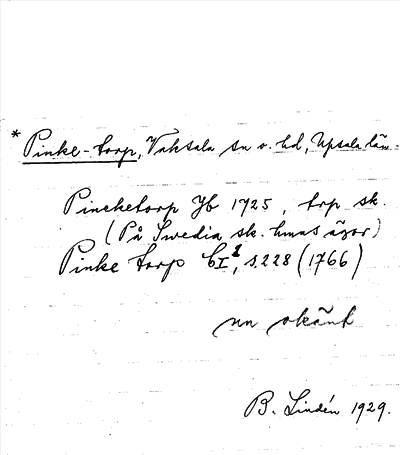 * Pinke-torp, Vaksala sn o. hd, Upsala län.
Pincketorp Jb 1725, trp sk.
(På Swedia sk. hmns ägor)
Pinke torp bI², s. 228 (1766)
nn okänt
B. Lindén 1929.